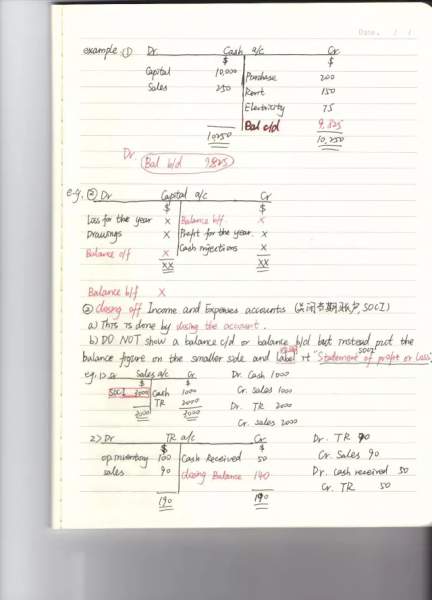 Date. / /
example ① Dr. Cash a/c Cr
$ $
Capital 10,000 Purchase 200
Sales 250 Rent 150
Electricity 75
Bal c/d 9,825
10,250 10,250
Dr.
Bal b/d 9825
e.g. ② Dr Capital a/c Cr
$ $
Loss for the year x Balance b/f. x
Drawings x Profit for the year. x
Balance c/f x Cash injections x
xx xx
Balance b/f x
② closing off Income and Expenses accounts (关闭当期账户, SOCI)
a) This is done by closing the account.
b) DO NOT show a balance c/d or balance b/d but instead put the
balance figure on the smaller side and label it "Statement of profit or Loss"
SOCI
eg. 1> Dr Sales a/c Cr. Dr. Cash 1000
$ $
SOCI 3000 Cash 1000 Cr. sales 1000
TR 2000 Dr. TR 2000
3000 3000 Cr. sales 2000
2> Dr TR a/c Cr Dr. TR 90
$ $
op inventory 100 Cash Received 50 Cr. Sales 90
sales 90 closing Balance 140 Dr. Cash received 50
190 190 Cr. TR 50